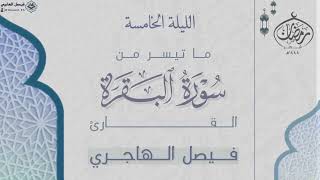 الليلة الخامسة
ما تيسر من
سُورَةُ البَقَرَة
القارئ
فيصل الهاجري
رمضان